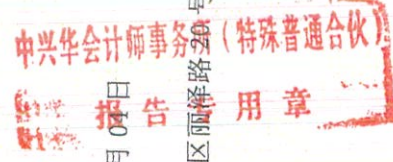 中兴华会计师事务所（特殊普通合伙）
报告专用章
月 01 日
区丽泽路 20 号